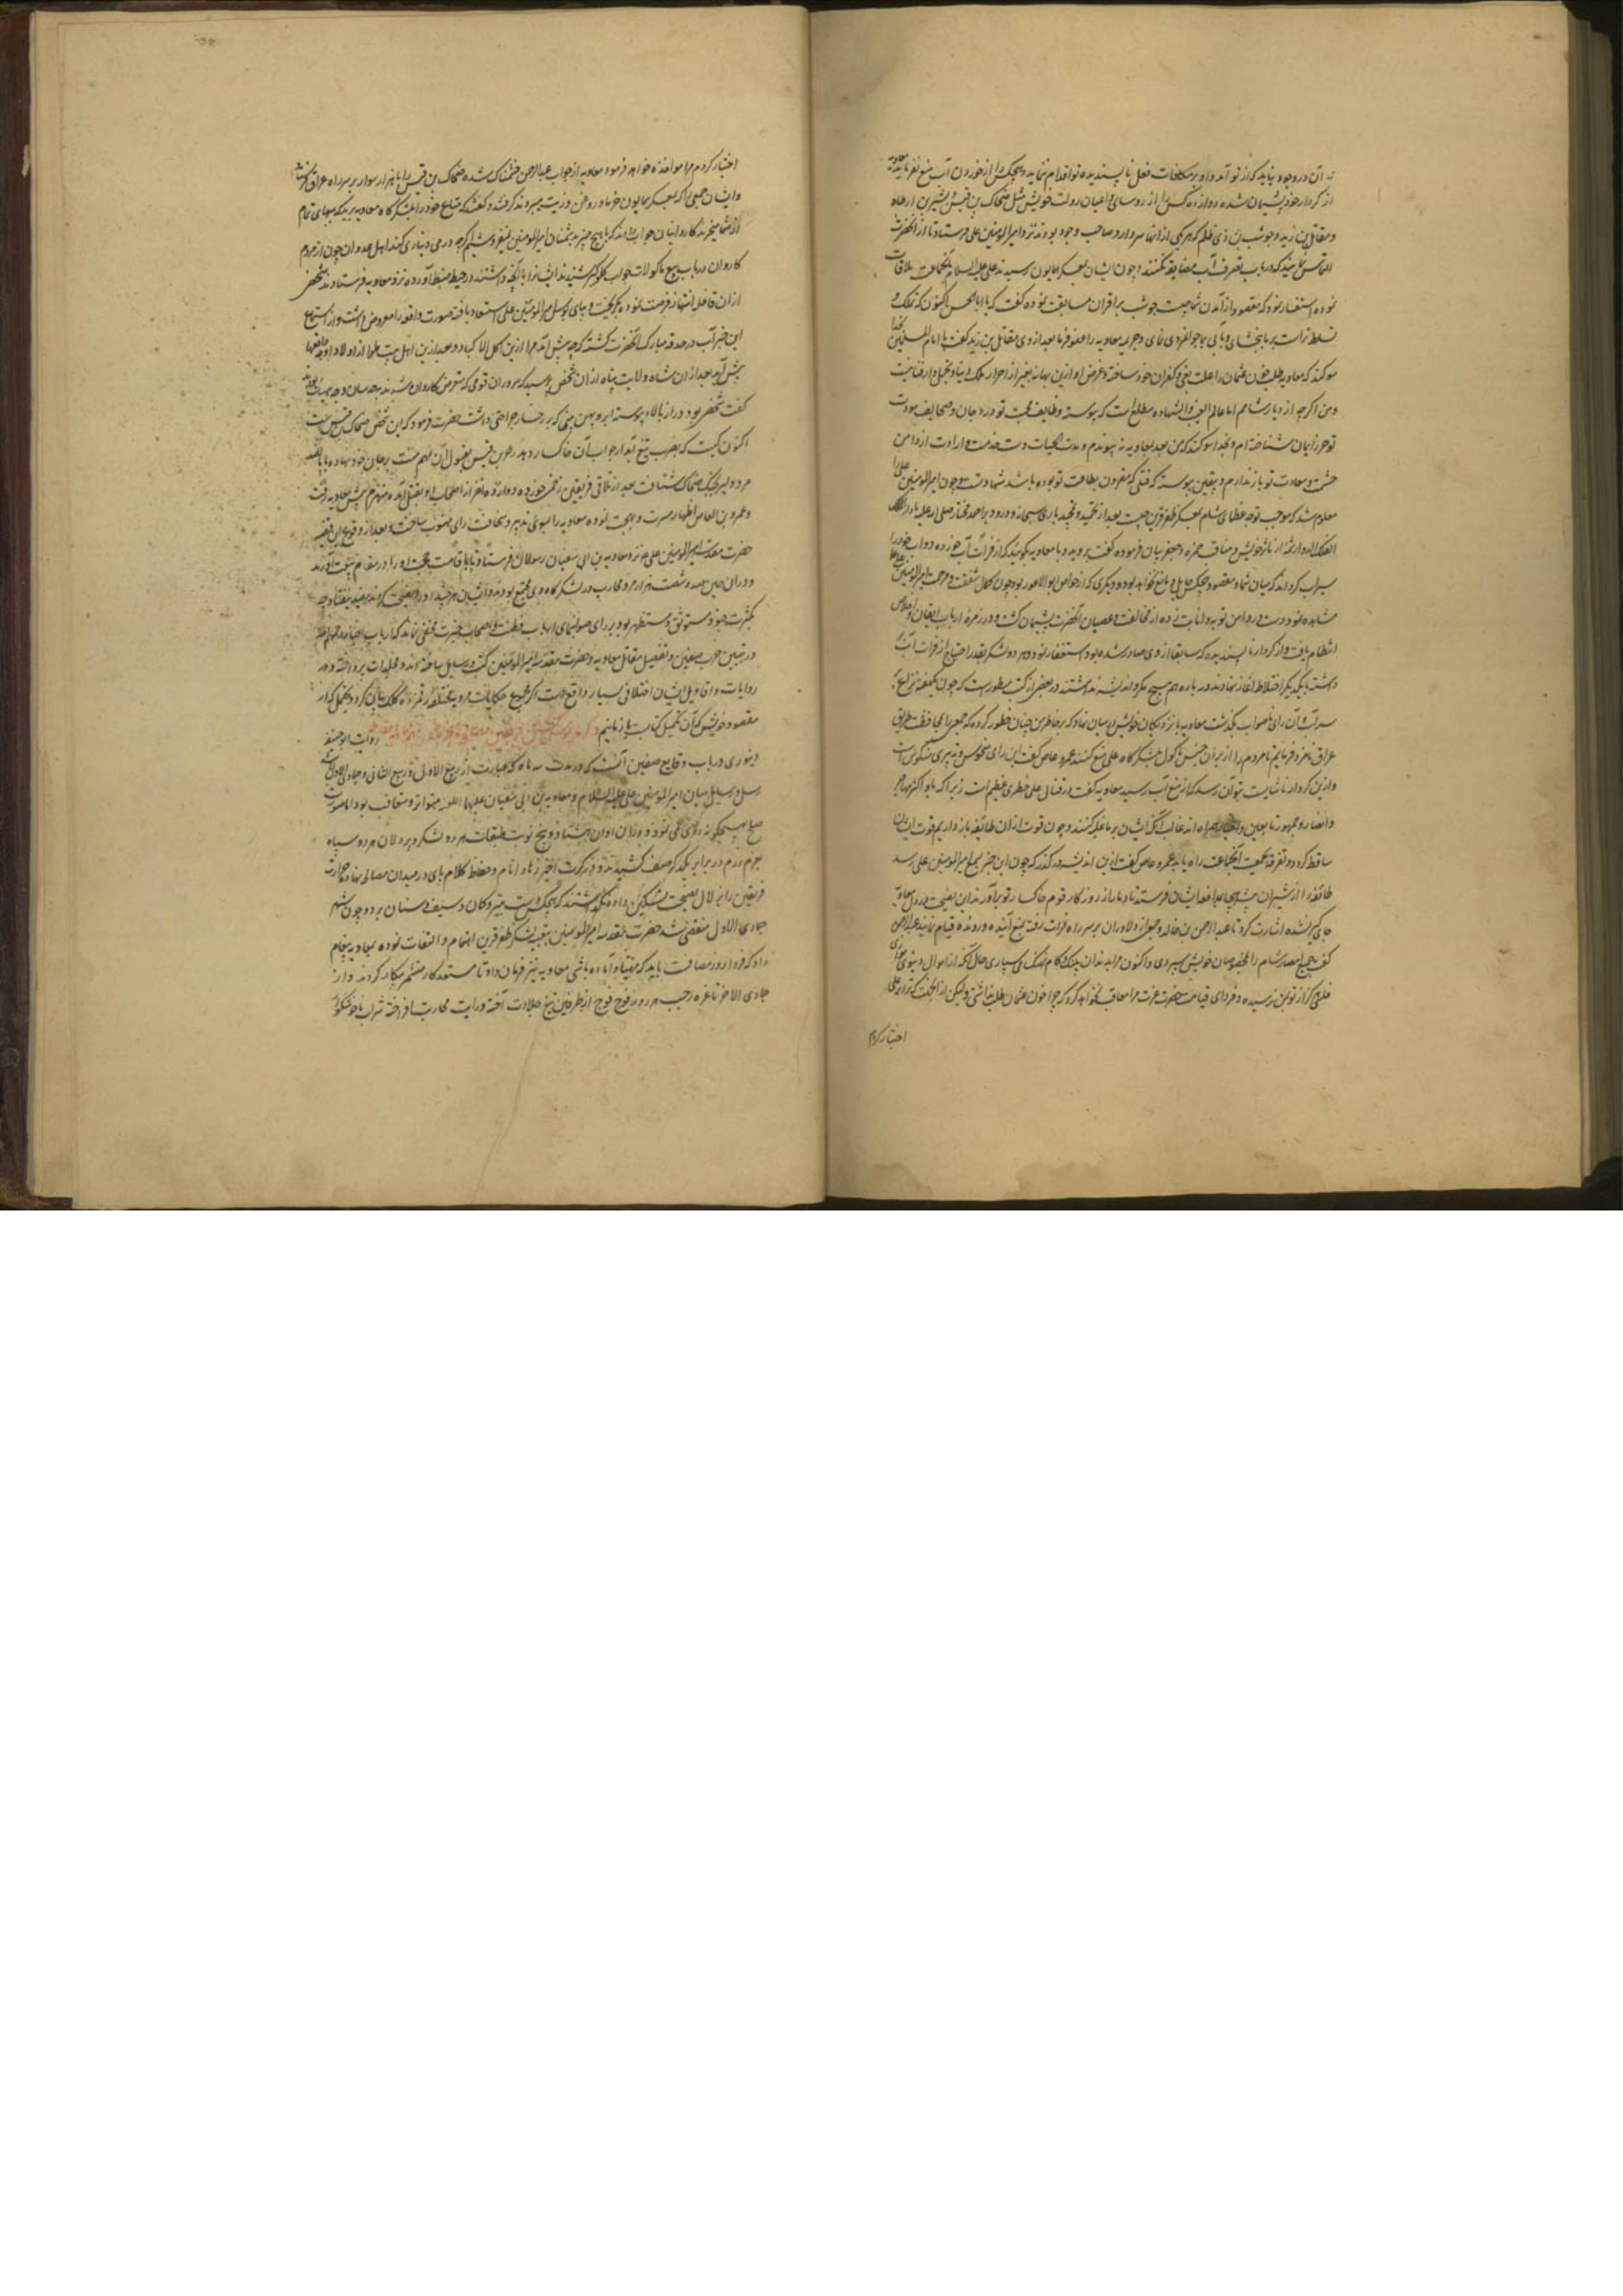 آن در وجود نیاید که از تو آمد و او بر مکافات فعل ناپسندیده تو اقدام ننماید و هیچکس را از خوردن آب منع نفرماید معاویه
از کردار خود پشیمان شده دوازده کس را از رؤسای و اعیان دولت خویش مثل ضحاک بن قیس و بشیر بن ارطاه
و مقاتل بن زید و حوشب بن ذی ظلم که هر یکی از آنها سردار و صاحب وجود بودند نزد امیر المومنین علی فرستاد تا از آنحضرت
التماس نمایند که در باب تصرف آب مضایقه نکنند و چون ایشان بمعسکر همایون رسیدند علی علیه السلام با آنجماعت ملاقات
نموده استفسار نمود که مقصود از آمدن شما چیست حوشب بر اقران مسابقت نموده گفت که یا ابا الحسن اکنون که تملک و
تسلط تراست بر ما ببخشای و با ما بجوانمردی نمای و جریمه معاویه را عفو فرما بعد از وی مقاتل بن زید گفت یا امام المسلمین بخدا
سوگند که معاویه طلب خون عثمان را علت بغی و کفران خود ساخته و غرض او ازین بهانه بغیر از احراز ملک دنیا و تجمل دار فنا نیست
و من اگر چه از دیار شامم اما عالم الغیب و الشهاده مطلع است که پیوسته وظایف محبت تو در دو جان و صحایف مودت
تو حرز ایمان شناخته ام و بخدا سوگند که من بعد بمعاویه نه پیوندم و مدت الحیات دست خدمت و ارادت از دامن
حشمت و سعادت تو باز ندارم و بیقین پیوسته که قتلی که مقرون بطاعت تو بوده باشد شهادتست و چون امیر المومنین علی را
معلوم شد که موجب توجه عظمای شام بمعسکر ظفر قرین چیست بعد از تحمید و تمجید باری سبحانه و درود بر احمد مختار صلی الله علیه مادار الفلک
الفلک الدوار شمه از مآثر خویش و مناقب حمزه و جعفر بیان فرموده گفت بروید و با معاویه بگویید که از فرات آب خورده دواب خود را
سیراب گرداند که میان شما و مقصود هیچکس حایل و مانع نخواهد بود و دیگری که از خواص ابو الاعور بود چون کمال شفقت و مرحمت امیر المومنین علی
مشاهده نمود دست در دامن توبه و انابت زده از مخالفت و عصیان آنحضرت پشیمان گشت و در زمره ارباب ایقان و اخلاص
انتظام یافت و از کردار ناپسندیده که سابقا از وی صادر شده بود استغفار نمود و هر دو لشکر بقدر احتیاج از فرات آب بر
داشته با یکدیگر اختلاط آغاز نهادند و در باره هم هیچ مکر و اندیشه نداشتند در بعضی از کتب مسطور است که چون یکهفته بنزاع بر
سر آب و آن رای ناصواب بگذشت معاویه با نزدیکان خویش در میان نهاد که بر خاطر من چنان خطور کرده که جمعی را بمحافظت طریق
عراق نامزد فرمایم تا مردم را از بردن جنس ماکول بلشکرگاه علی منع کنند عمرو عاص گفت این رای منحوس و تدبیری منکوس است
و ازین کردار ناشایست بتو آن رسد که از منع آب رسید معاویه گفت در قتال علی خطری عظیم است زیرا که با او اکثر مهاجر
و انصار و جمهور تابعین و اخیار همراه اند غالب آنکه ایشان بر ما غلبه کنند و چون قوت از ان طائفه باز داریم قوت ایشان
ساقط گردد و تفرقه بجمعیت آنجماعت راه یابد عمرو عاص گفت ازین اندیشه در گذر که چون این خبر بسمع امیر المومنین علی رسد
طائفه را از شیران بیشه هیجا بمدافعه ایشان فرستد تا دمار از روزگار قوم خاکسار تو برآورند این نصیحت در دل معاویه
جای گیر نشده اشارت کرد تا عبد الرحمن بن خالد و جمعی از دلاوران بر سر راه فرات رفته بمنع آینده و رونده قیام نمایند عبد الرحمن
گفت جمیع امصار شام را بمخصوصان خویش سپردی و اکنون مرا بدندان پلنگ و کام نهنگ می سپاری حال آنکه از اموال دنیوی مرا
فلسی از تو بمن نرسیده و فردای قیامت حضرت عزت مرا معاقب نخواهد کرد که چرا خون عثمان طلب نداشتی و لیکن از آنجهت که ترا بر علی
اختیار کردم
اختیار کردم مرا مواخذه خواهد فرمود معاویه از جواب عبد الرحمن خشمناک شده ضحاک بن قیس را با هزار سوار بر سر راه عراق فرستاد
و ایشان جمعی را که بمعسکر همایون خرما و روغن و زیت میبردند گرفتند و گفتند که متاع خود را بلشکرگاه معاویه برید که ببهای تمام
از شما میخرند کاروانیان جواب دادند که ما هیچ چیز بدشمنان امیر المومنین نفروشیم اگرچه درمی بدیناری کنند اهل عدوان چون از مردم
کاروان در باب بیع ماکولات جواب شنیدند ایشانرا با آنچه داشتند در حیطه ضبط آورده نزد معاویه فرستادند شخصی
از ان قافله انتهاز فرصت نموده بگریخت و بپای بوس امیر المومنین علی استسعاد یافته صورت واقعه را معروض داشت و از استماع
این خبر آب در حدقه مبارک آنحضرت گشته که چه پیش آمد مرا ازین اکل الاکباد و بعد ازین اهل بیت مرا از اولاد او چه واقعها
پیش آید بعد از ان شاه ولایت پناه از ان شخص پرسید که سردار ان قومی که متعرض کاروان شدند بچه سان و چه هیات بودند
گفت شخصی بود دراز بالا و پیوسته ابرو و پهن بینی که بر رخسار جراحتی داشت حضرت فرمود که این شخص ضحاک بن قیس است
اکنون کیست که بضرب تیغ آبدار جواب آن خاکسار دهد حجر بن قیس بقبول آن مهم منت بر جان خود نهاده با پانصد
مرد دلیر بجنگ ضحاک شتافت بعد از تلاقی فریقین زخم خورده دوازده نفر از اصحاب او بقتل آمده منهزم پیش معاویه رفت
و عمرو بن العاص اظهار مسرت و بهجت نموده معاویه را بسوی تدبیر و سخافت رای منسوب ساخت و بعد از وقوع این قضیه
حضرت مقدسه امیر المومنین علی نزد معاویه بن ابی سفیان رسولان فرستاد تا باقامت حجت او را در مقام بیعت آورند
و در ان حین صد و شصت هزار مرد محارب در لشکرگاه وی مجتمع بودند و ایشان هر چند او را نصیحت کردند مفید نیفتاد چه
بکثرت جنود مستوثق و مستظهر بود بر رای صوابنمای ارباب فطنت و اصحاب خبرت مخفی نماند که ارباب اخبار رحمهم الله
در تبیین حرب صفین و تفصیل مقاتل معاویه و حضرت مقدسه امیر المومنین کتب و رسایل ساخته اند و مجلدات پرداخته و در
روایات و اقاویل ایشان اختلافی بسیار واقع است اگر مجموع حکایات مرویه مختلفه رقمزده کلک بیان گردد یحتمل که از
مقصود خویش که آن تکمیل کتابست باز مانیم روایت ابو حنیفه
دینوری در باب وقایع صفین آنست که در مدت سه ماه که عبارت از ربیع الاول و ربیع الثانی و جمادی الاول باشد
رسل و رسایل میان امیر المومنین علی علیه السلام و معاویه بن ابی سفیان علیهما اللعنه متواتر و متعاقب بود اما صورت
صلح بهیچگونه روی نمی نمود و در ان اوان هشتاد و پنج نوبت طبقات هر دو لشکر و پر دلان هر دو سپاه
بعزم رزم در برابر یکدیگر صف کشیدند و در هر کرت اخیر زهاد انام و حفاظ کلام پای در میدان مصالحه نهاده حرارت
فریقین را بزلال نصیحت تسکین داده نگذاشتند که هیچکس دست بتیر و کمان و سیف و سنان برد و چون شهر
جمادی الاول منقضی شد حضرت مقدسه امیر المومنین بتعبیه لشکر ظفر قرین اهتمام و التفات نموده بمعاویه پیغام
داد که فردا روز مصافست باید که مهیا و آماده باشی معاویه نیز فرمان داد تا مستعد کار متشمر پیکار کردند و از
جمادی الاخر تا غره رجب هر روز فوج فوج از طرفین تیغ جلادت آخته و رایت محاربت افراخته شراب ناخوشگوار